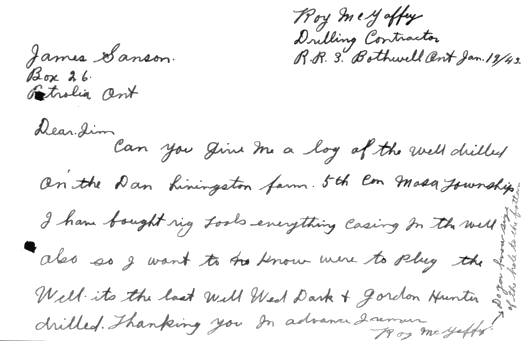 Roy McGaffey
Drilling Contractor
R.R. 3. Bothwell Ont Jan. 19/43.
James Sanson.
Box 26.
Petrolia Ont
Dear Jim
Can you give me a log of the well drilled
on the Dan Livingston farm. 5th Con Mosa Township
I have bought rig tools everything casing in the well
also so I want to know were to plug the
Well. its the last Well Wed Dark + Gordon Hunter
drilled. Thanking you In advance I remain
Roy McGaffey
Do you know size
of the hole to the bottom